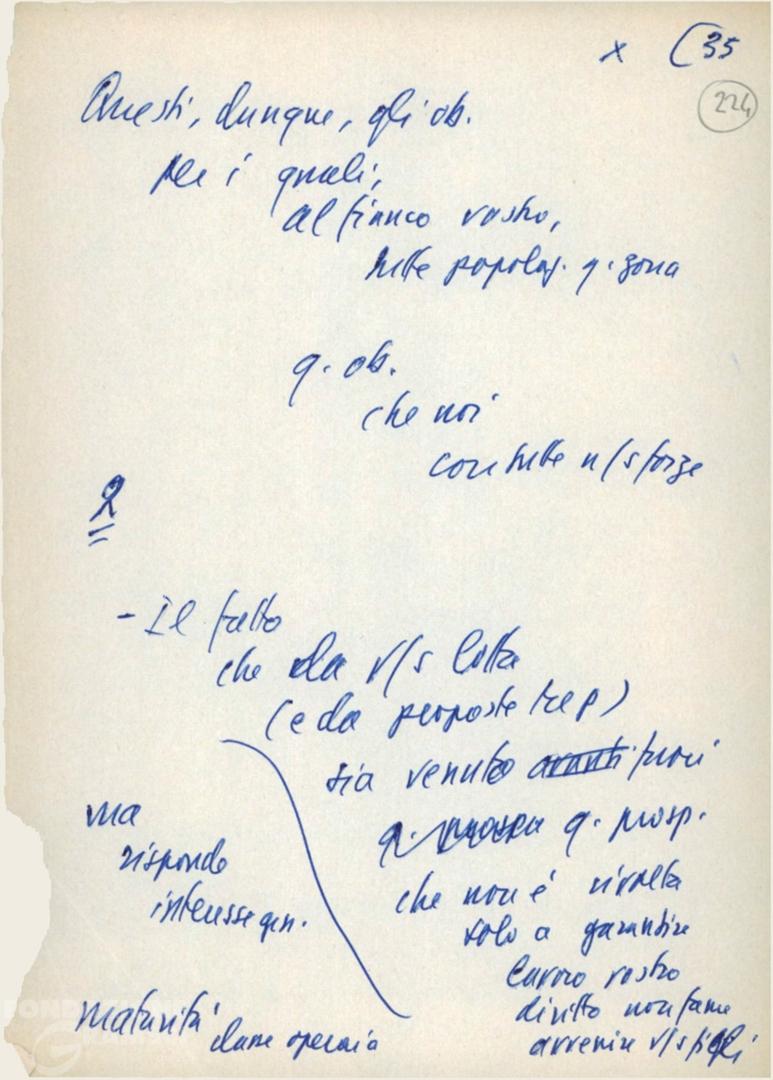 x (35
224
Questi, dunque, gli ob.
per i quali,
al fianco vostro,
tutte popolaz. q. zona
q. ob.
che noi
con tutte n/s forze
2
- Il fatto
che da v/s lotta
(e da proposte
sia venuto avanti fuori
q. q. prosp.
che non è rivolta
solo a garantire
lavoro vostro
diritto non fame
avvenire v/s figli
ma
risponde
interesse gen.
maturità classe operaia
FONDAZIONE